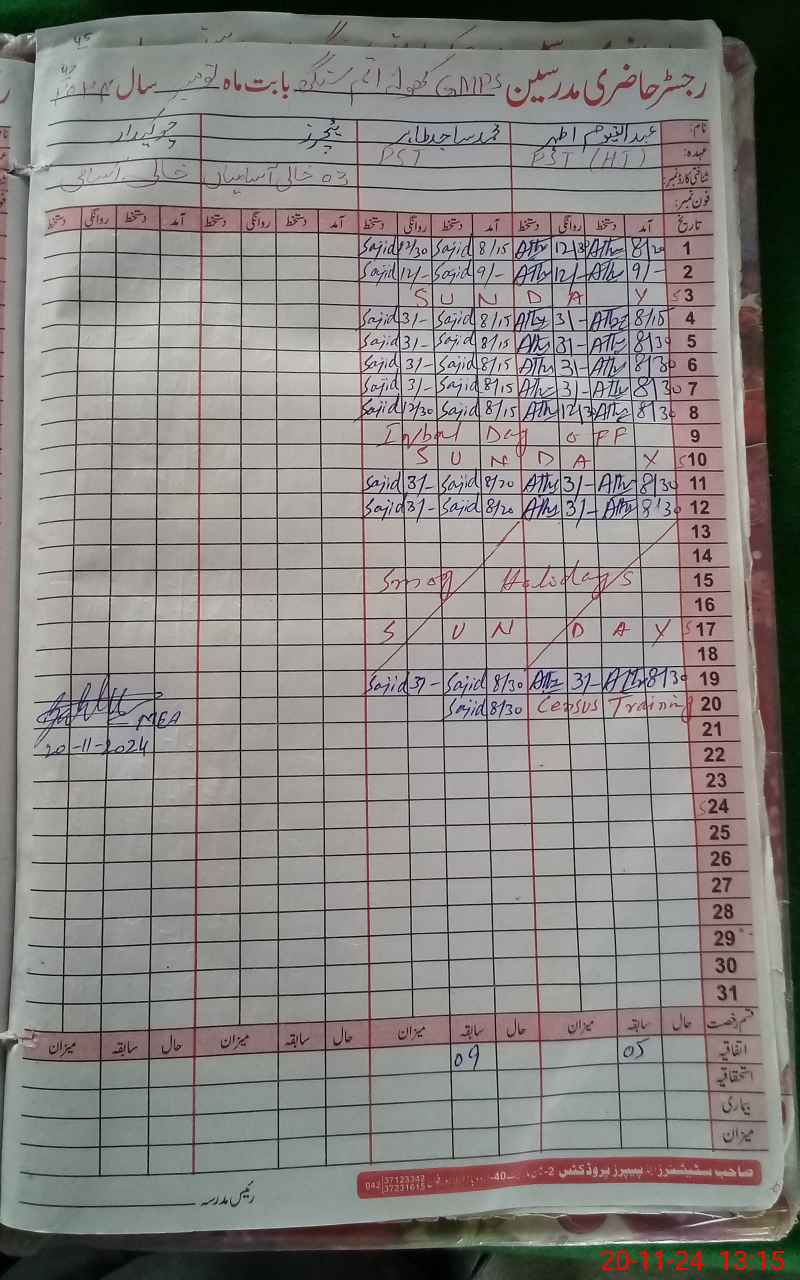 رجسٹر حاضری مدرسین GMPS بابت ماہ نومبر سال
نام: عبدالقیوم اطہر محمد ساجد طاہر ٹیچرز چوکیدار
عہدہ: PST (HT) PST
شناختی کارڈ نمبر: 03 خالی آسامیاں خالی آسامی
فون نمبر:
تاریخ آمد دستخط روانگی دستخط آمد دستخط روانگی دستخط آمد دستخط روانگی دستخط آمد دستخط روانگی دستخط
Sajid 12/30 Sajid 8/15 Athr 12/3 Athr 8/20 1
Sajid 12/- Sajid 9/- Athr 12/- Athr 9/- 2
S U N D A Y S 3
Sajid 3/- Sajid 8/15 Athr 3/- Athr 8/15 4
Sajid 3/- Sajid 8/15 Athr 3/- Athr 8/30 5
Sajid 3/- Sajid 8/15 Athr 3/- Athr 8/30 6
Sajid 3/- Sajid 8/15 Athr 3/- Athr 8/30 7
Sajid 12/30 Sajid 8/15 Athr 12/3 Athr 8/30 8
Iqbal Day OFF 9
S U N D A Y S 10
Sajid 3/- Sajid 8/20 Athr 3/- Athr 8/30 11
Sajid 3/- Sajid 8/20 Athr 3/- Athr 8/30 12
13
14
Smog Holidays 15
16
S U N D A Y S 17
18
Sajid 3/- Sajid 8/30 Athr 3/- Athr 8/30 19
Sajid 8/30 Census Training 20
MEA
20-11-2024
21
22
23
S 24
25
26
27
28
29
30
31
قسم رخصت حال سابقہ میزان حال سابقہ میزان حال سابقہ میزان حال سابقہ میزان
اتفاقیہ 05 09
استحقاقیہ
بیماری
میزان
صاحب سٹیشنرز پیپرز پروڈکٹس
042 37123342
37231615
رئیس مدرسہ
20-11-24 13:15